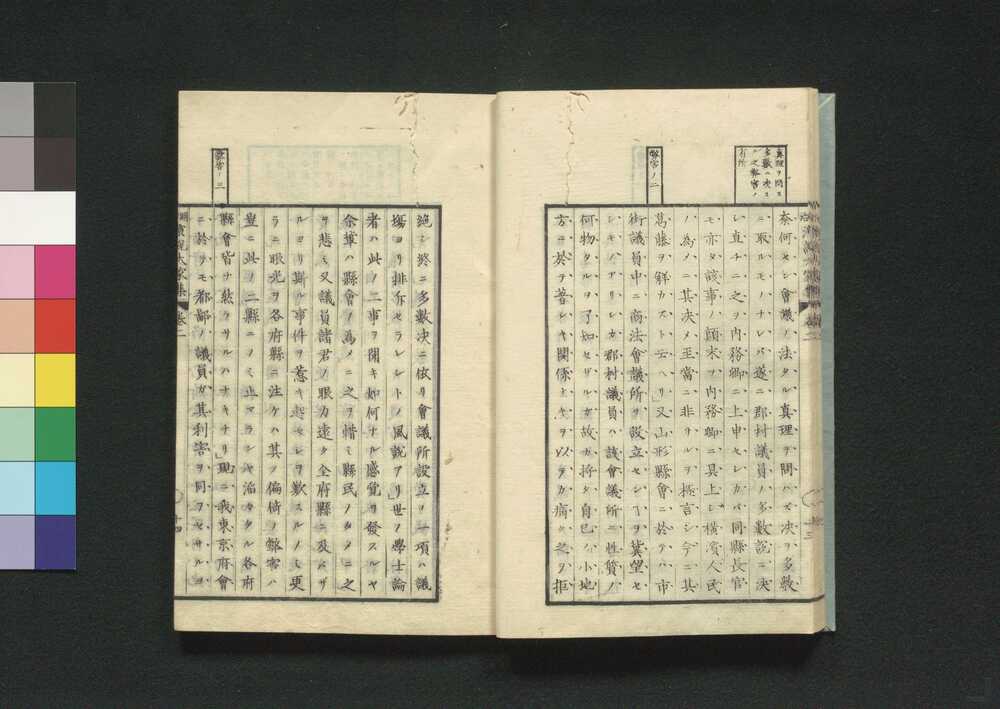 真理ヲ問ハス
多數ハ決ス
ル之弊害ノ
有所
奈何セン會議ノ法タル真理ヲ問ハズ決ヲ多數
ニ取ルモノナレバ遂ニ郡村議員ノ多數説ニ決
シ直チニ之ヲ内務卿ニ上申セシガバ同縣長官
モ亦タ該事ノ顛末ヲ内務卿ニ具上シ横濱人民
ノ為メニ其决メ至當ニ非サルヲ極言シ今ニ其
葛藤ヲ解カスト云ヘリ」又山形縣會ニ於テハ市
弊害ノ二
街議員中ニ商法會議所ヲ設立センヿヲ冀望セ
シモノアリシガ郡村議員ハ該會議所ノ性質ノ
何物タルヲ了知セザルガ故カ将タ自己ノ小地
方ニ於テ著シキ關係ナキヲ以テカ痛ク之ヲ拒
絶シ終ニ多數决ニ依リ會議所設立ノ一項ハ議
塲ヨリ排斥セラレシトノ風説アリ」世ノ學士論
者ハ此ノ二事ヲ聞キ如何ナル感覚ヲ發スルヤ
余輩ハ縣會ノ為メニ之ヲ惜ミ縣民ノタメニ之
ヲ悲ミ又議員諸君ノ眼力遠ク全府縣ニ及バザ
ルヨリ斯ル事件ヲ惹キ起セシヲ歎スルノミ更
ラニ眼光ヲ各府縣ニ注ケハ其ノ偏倚ノ弊害ハ
豈ニ此ノ二縣ニノミ止マランヤ滔々タル各府
弊害ノ三
縣會皆ナ然ラサルハナキナリ」現ニ我東京府會
ニ於テモ都鄙ノ議員ガ其利害ヲ同フセサルヨ
演説大家集 卷二
十四